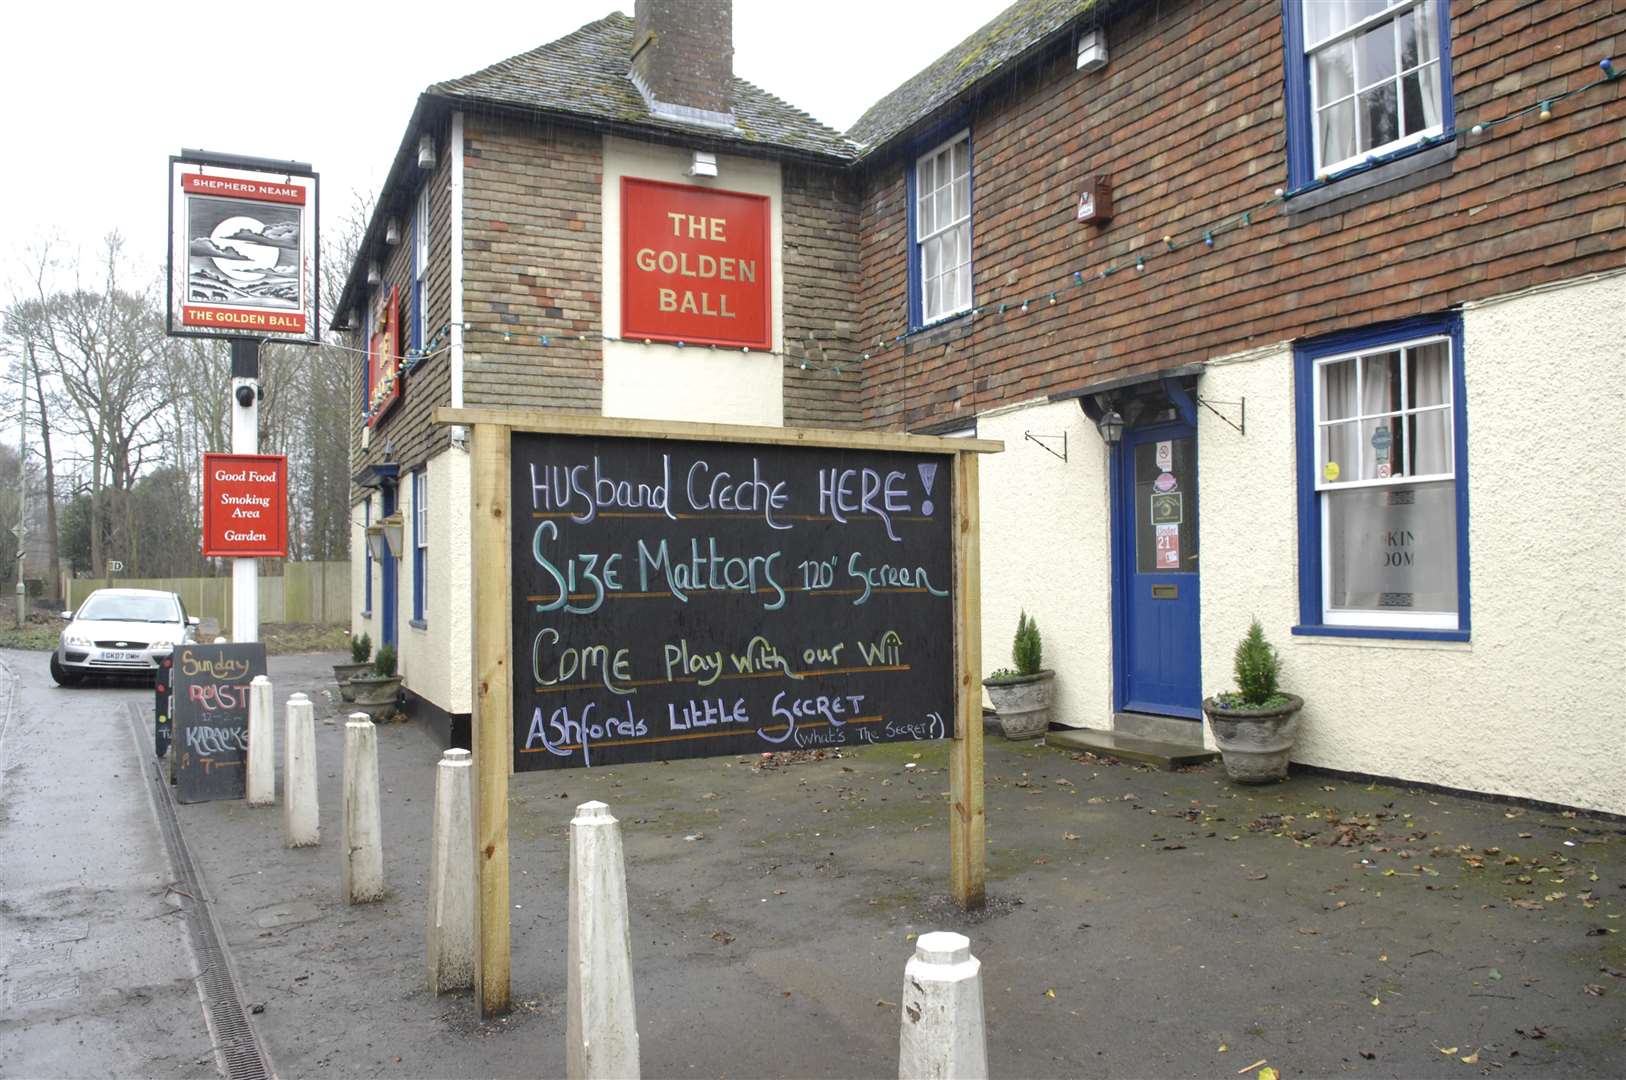 SHEPHERD NEAME
THE GOLDEN BALL
Good Food
Smoking
Area
Garden
THE
GOLDEN
BALL
THE
HUSband Creche HERE!
SIZE Matters 120" Screen
Come play with our Wii
Ashfords LittLe Secret
(What's The Secret?)
Sunday
ROAST
KARAOKE
GK07 OWH
Under
21
KIN
OOM